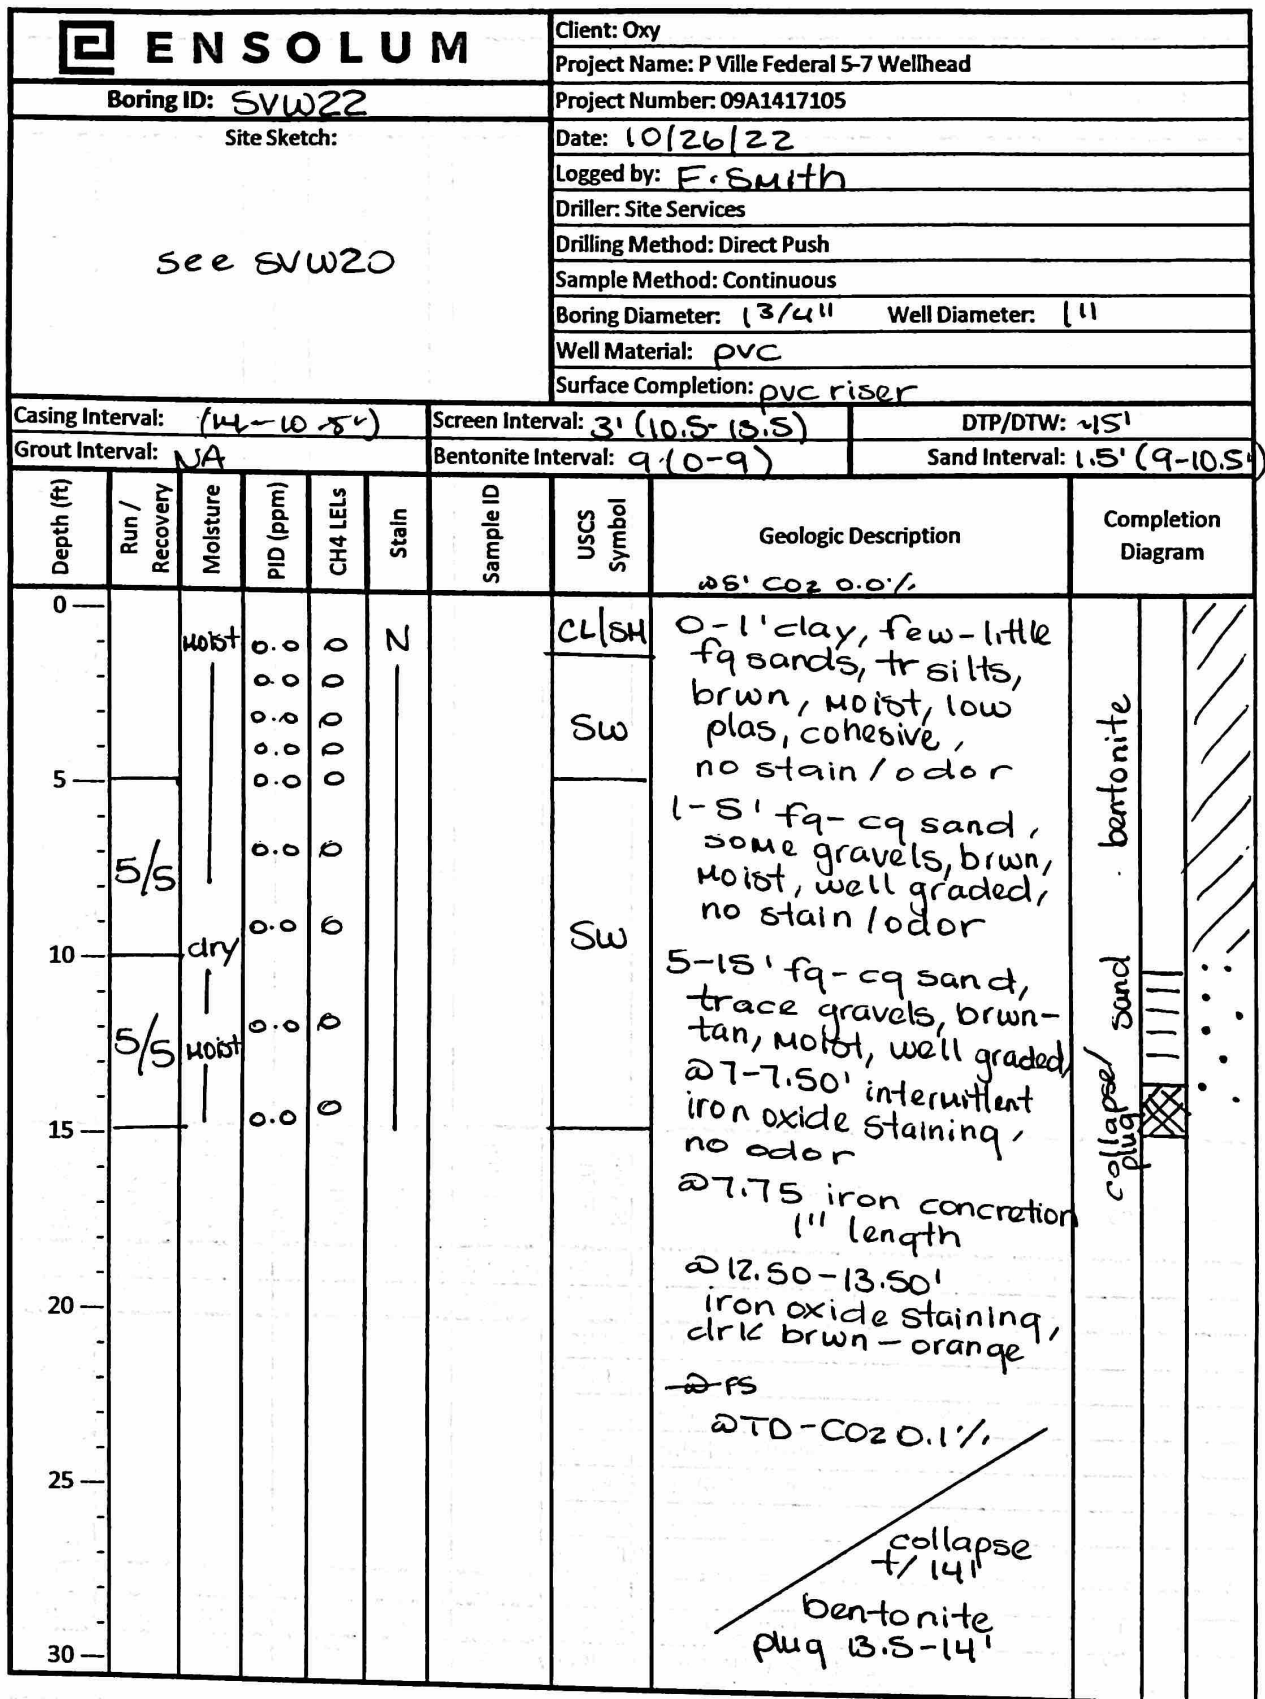 ENSOLUM
Boring ID: SVW22
Site Sketch:
see SVW20
Client: Oxy
Project Name: P Ville Federal 5-7 Wellhead
Project Number: 09A1417105
Date: 10/26/22
Logged by: E. Smith
Driller: Site Services
Drilling Method: Direct Push
Sample Method: Continuous
Boring Diameter: 1 3/4" Well Diameter: 1"
Well Material: PVC
Surface Completion: pvc riser
Casing Interval:
Screen Interval: 3' (10.5-13.5)
DTP/DTW: ~15'
Grout Interval: NA
Bentonite Interval: 9 (0-9)
Sand Interval: 1.5' (9-10.5')
Depth (ft)
Run / Recovery
Moisture
PID (ppm)
CH4 LELs
Stain
Sample ID
USCS Symbol
Geologic Description
@5' CO2 0.0%
Completion Diagram
0
5
10
15
20
25
30
5/5
5/5
Moist
dry
Moist
0.0 0
0.0 0
0.0 0
0.0 0
0.0 0
0.0 0
0.0 0
0.0 0
0.0 0
N
CL/SM
SW
SW
0-1' clay, few-little
fg sands, tr silts,
brwn, moist, low
plas, cohesive,
no stain/odor
1-5' fg-cg sand,
some gravels, brwn,
moist, well graded,
no stain/odor
5-15' fg-cg sand,
trace gravels, brwn-
tan, moist, well graded,
@7-7.50' intermittent
iron oxide staining,
no odor
@7.75 iron concretion
1" length
@12.50-13.50'
iron oxide staining,
drk brwn-orange
@TD-CO2 0.1%
collapse
t/14'
bentonite
plug 13.5-14'
bentonite
sand
collapse/
plug